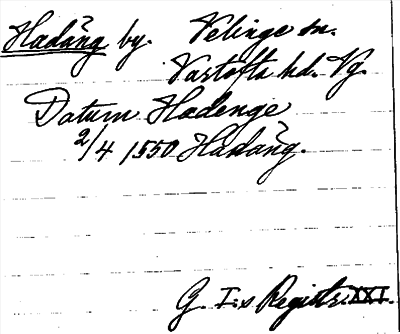 Hadäng by. Velinge sn.
Vartofta hd. Vg.
Datum Hadenge
2/4 1550 Hadäng.
G. I:s Registr. XXI.